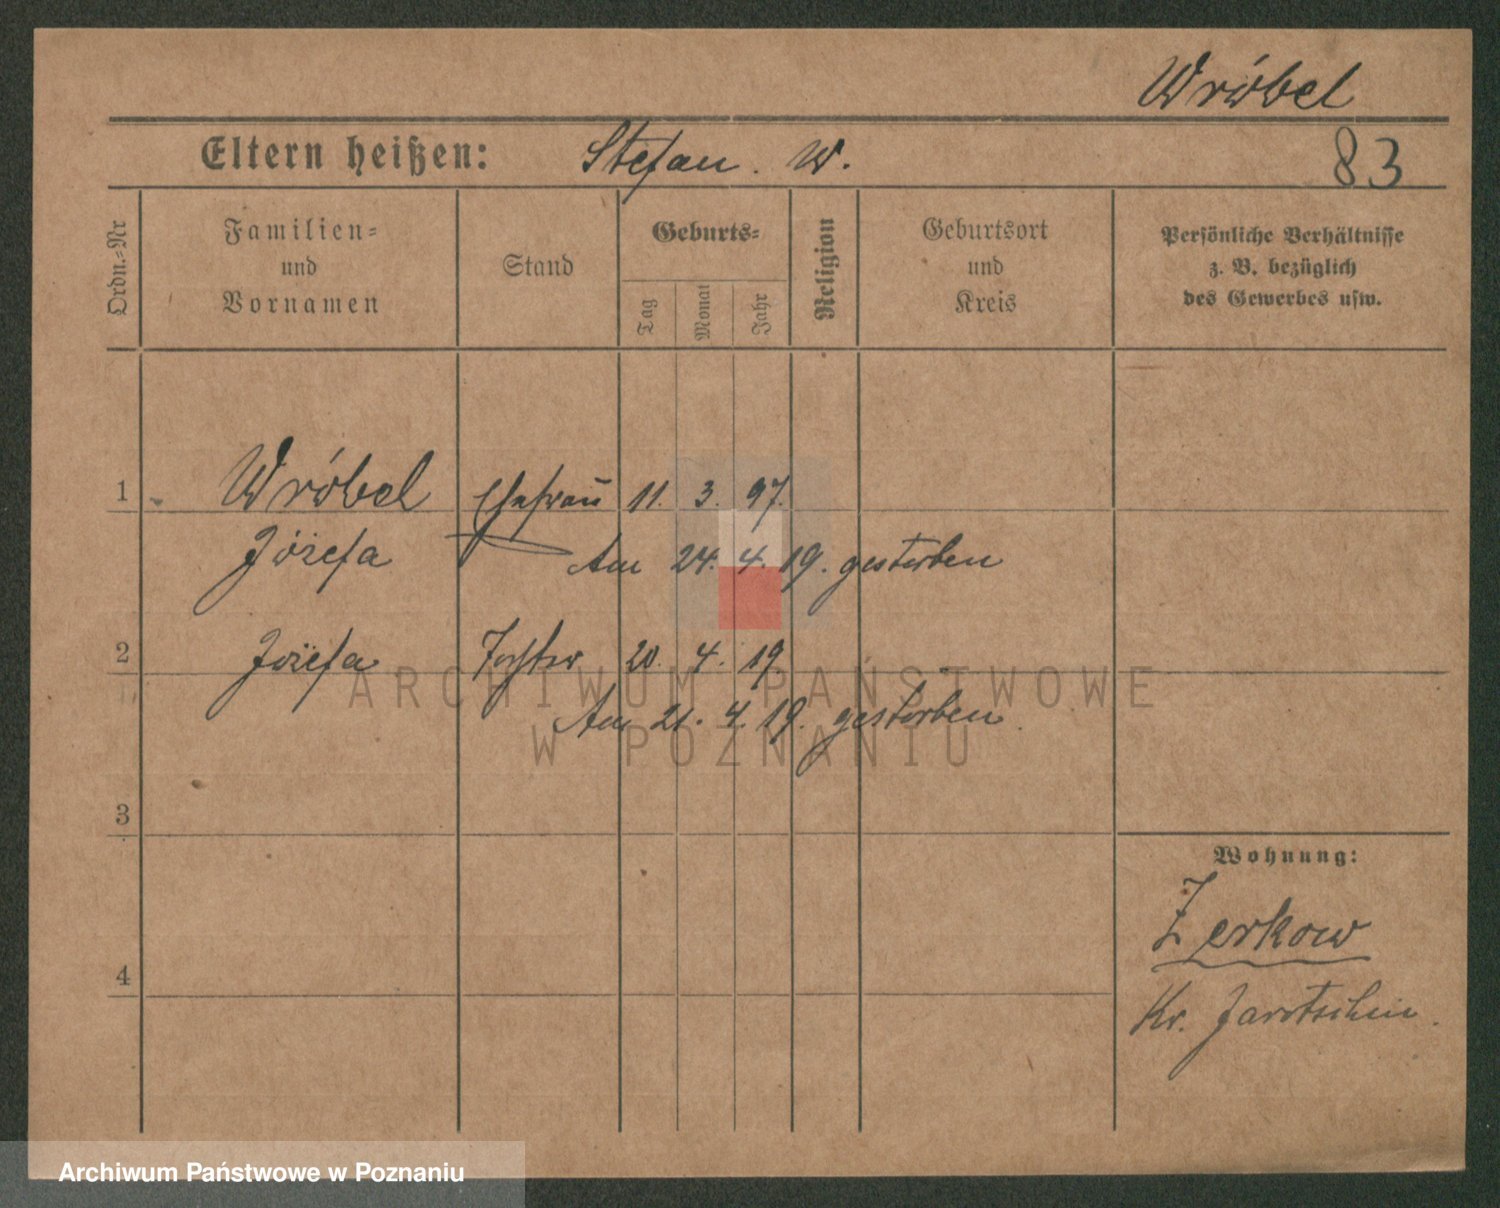 Wróbel
Eltern heißen: Stefan. W.
83
Ordn.-Nr
Familien-
und
Vornamen
Stand
Geburts-
Tag
Monat
Jahr
Religion
Geburtsort
und
Kreis
Persönliche Verhältnisse
z. B. bezüglich
des Gewerbes usw.
1 Wróbel Ehefrau 11. 3. 97.
Józefa Am 24. 4. 19. gestorben
2 Józefa Tochter 20. 4. 19
Am 21. 4. 19. gestorben.
ARCHIWUM PAŃSTWOWE
W POZNANIU
3
Wohnung:
Zerkow
4
Kr. Jarotschin.
Archiwum Państwowe w Poznaniu